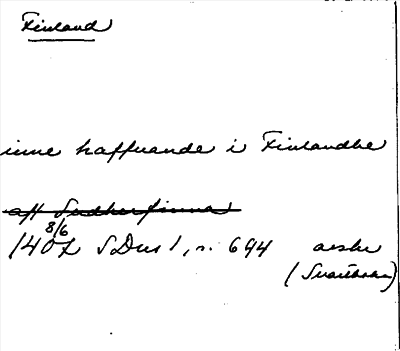 Finland
inne haffuande i Finlandhe
aff Sudherfinna
8/6
1407 SDns 1, n. 694 avskr
(Svartbrar)